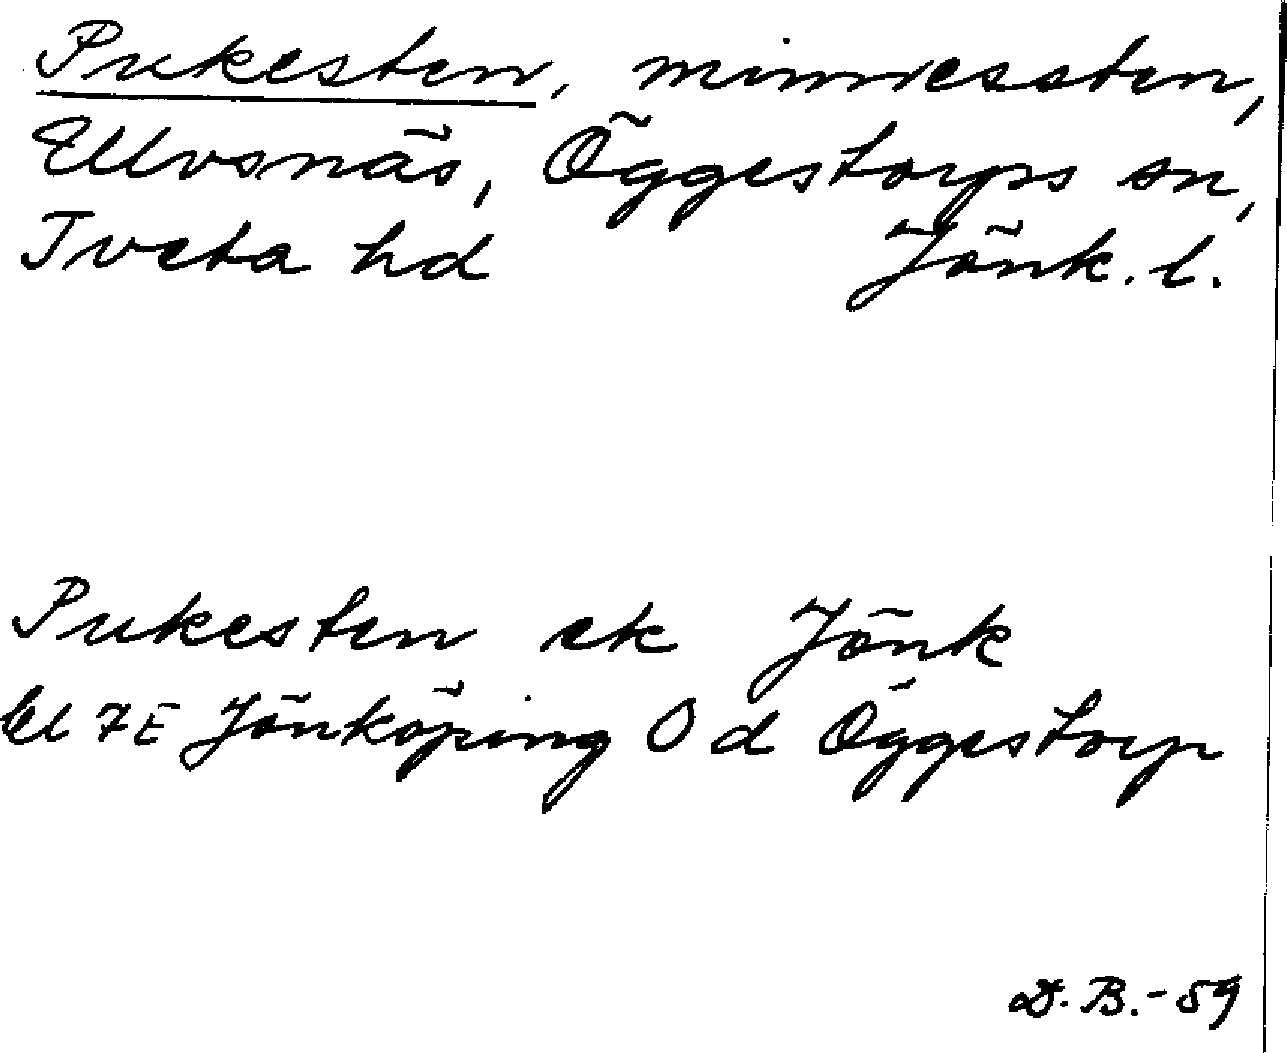 Pukesten, minnessten,
Ulvsnäs, Öggestorps sn,
Tveta hd Jönk. l.
Pukesten ek Jönk
bl 7E Jönköping 0 d Öggestorp
D.B.-59